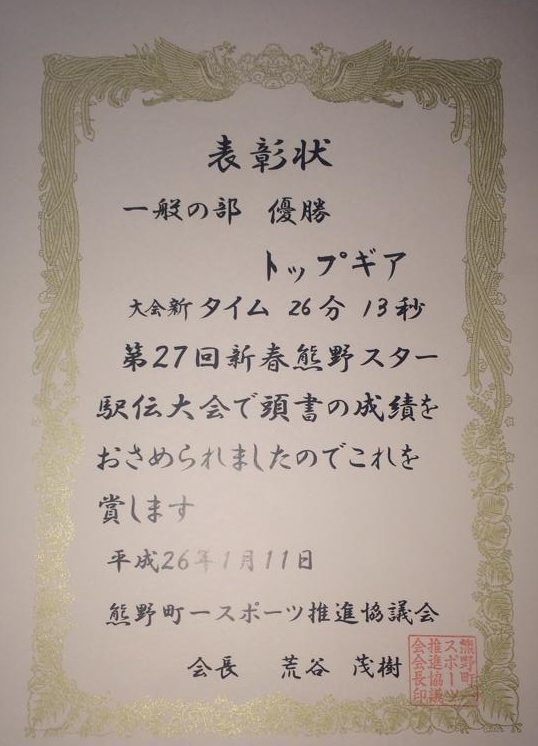 表彰状
一般の部 優勝
トップギア
大会新 タイム 26分 13秒
第27回新春熊野スター
駅伝大会で頭書の成績を
おさめられましたのでこれを
賞します
平成26年1月11日
熊野町一スポーツ推進協議会
会長 荒谷 茂樹
熊野町一
スポーツ
推進協議
会会長印